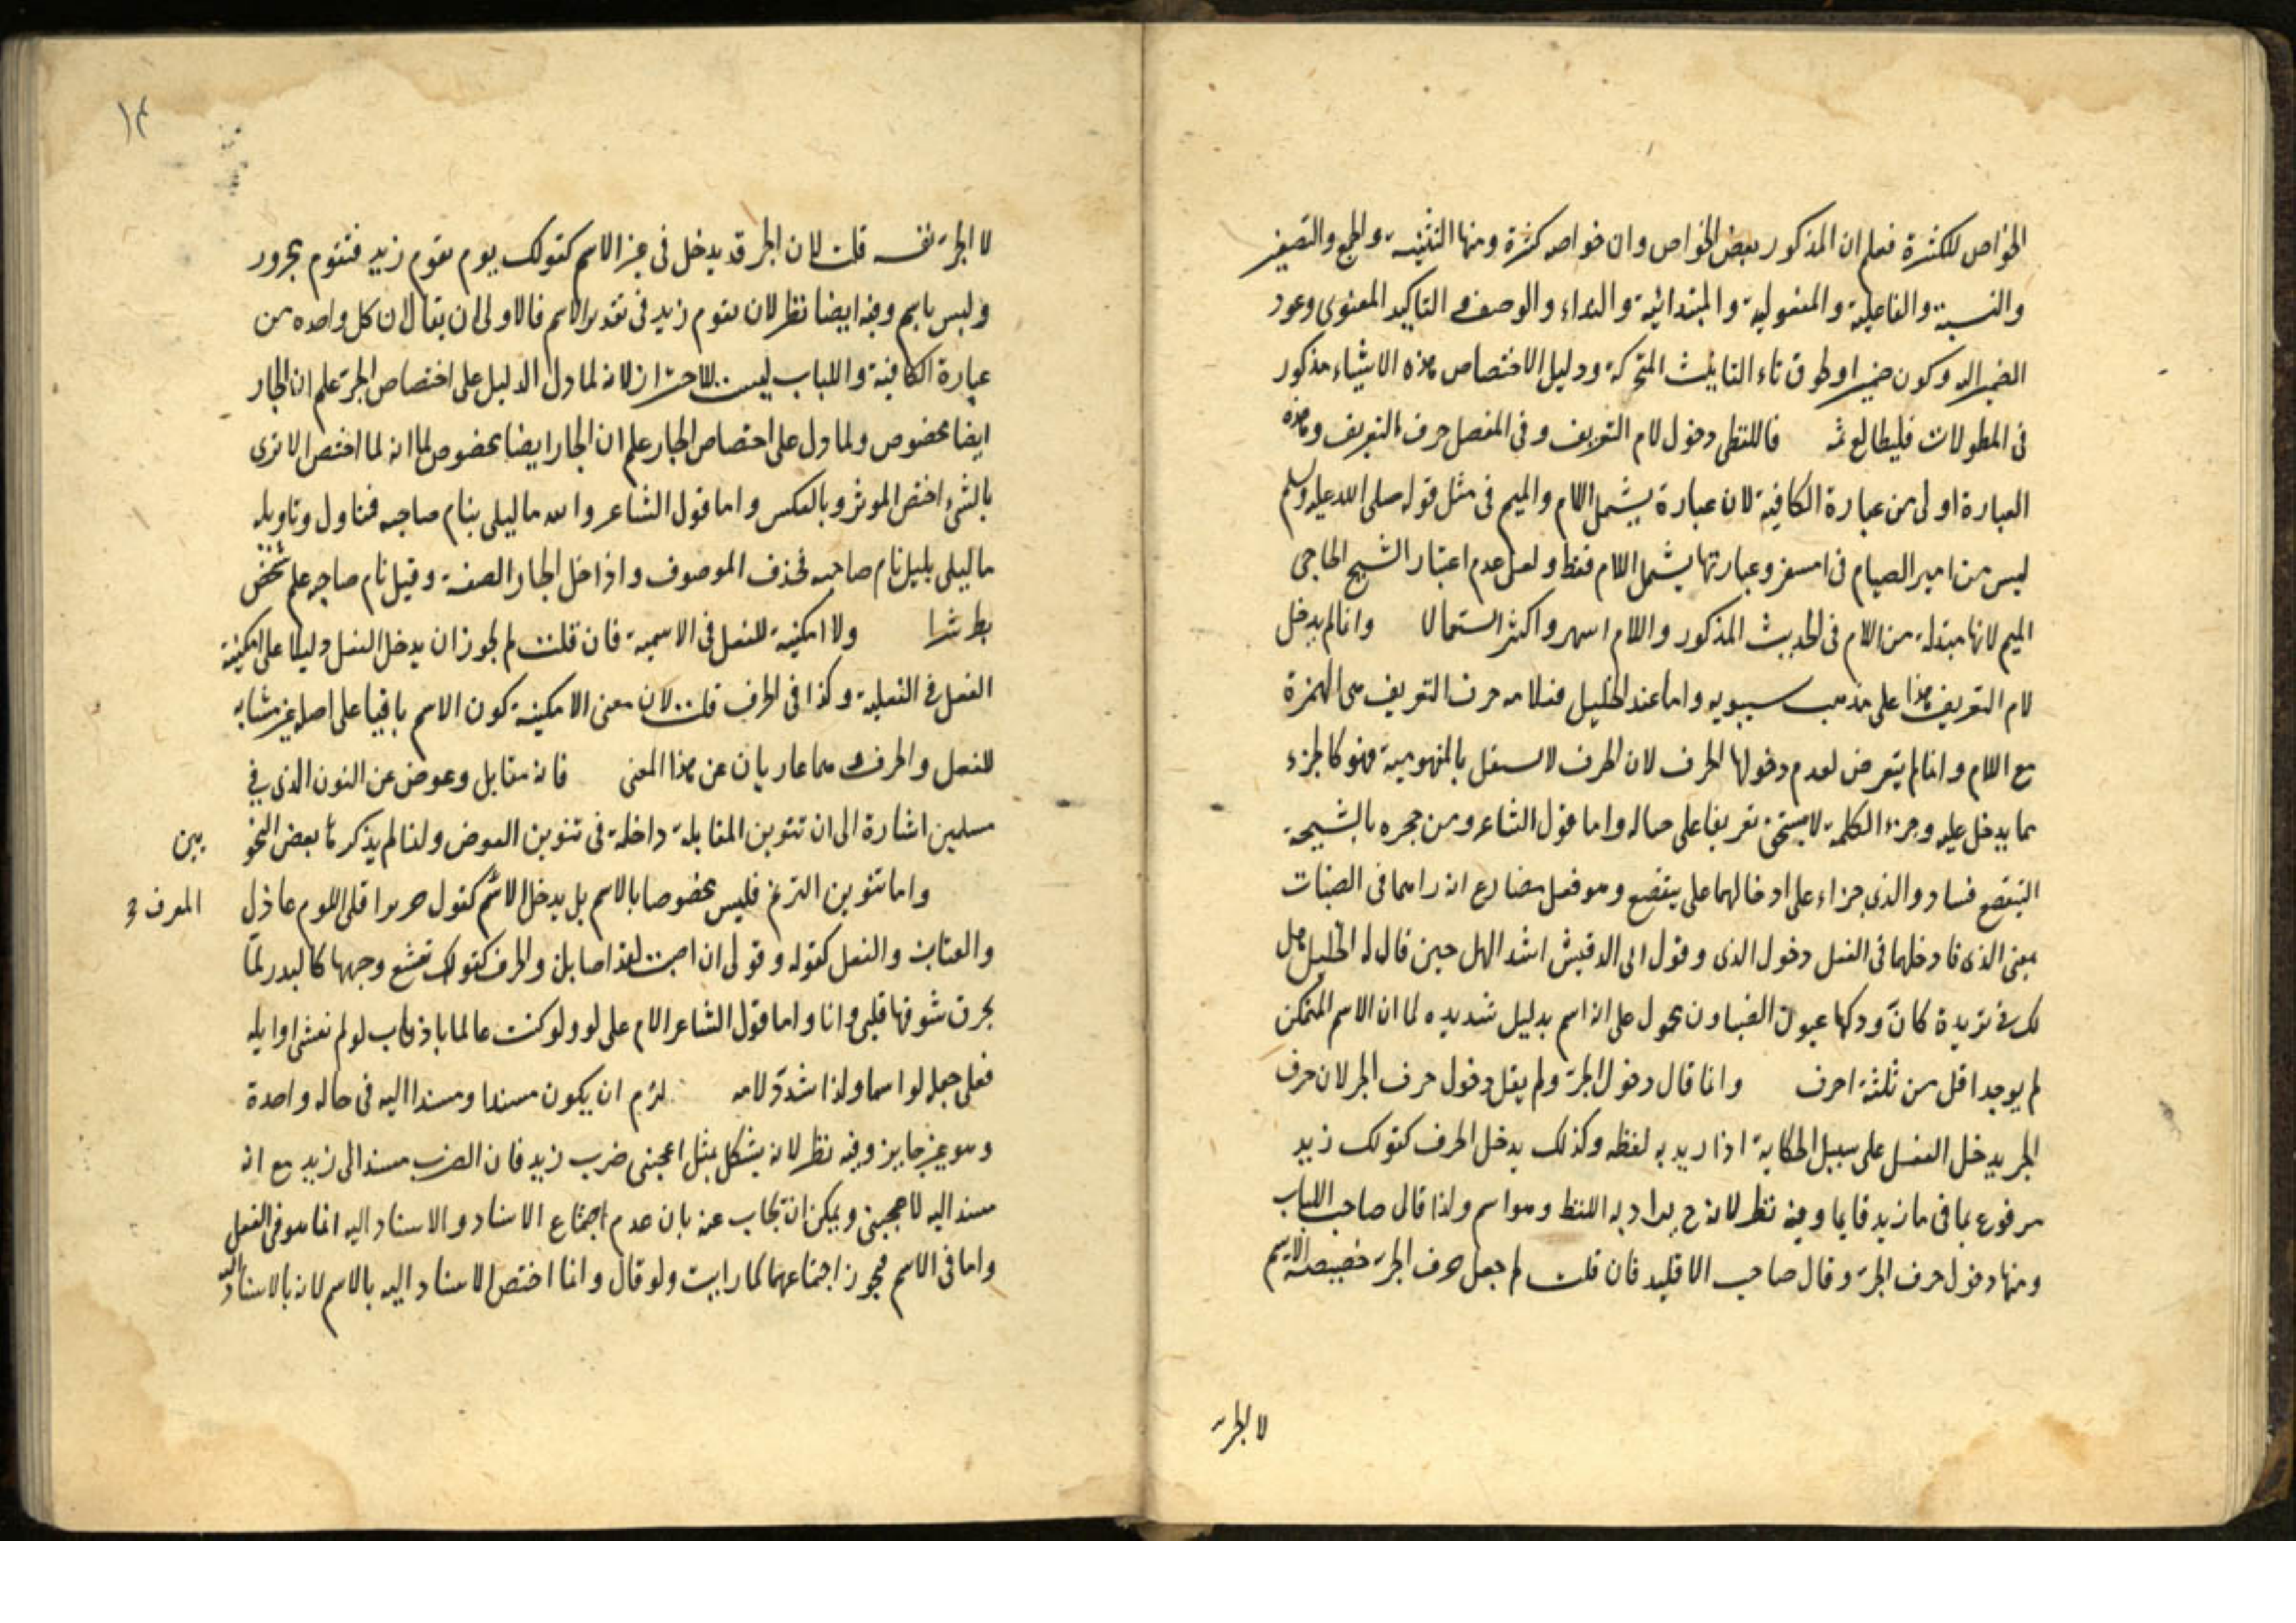 الخواص للكثرة فعلم ان المذكور بعض الخواص وان خواصه كثرة ومنها التثنية والجمع والتصغير
والنسبة والفاعلية والمفعولية والمبتدائية والنداء والوصف والتاكيد المعنوى وعود
الضمير اليه وكون ضميرا ولحوق تاء التانيث المتحركة ودليل الاختصاص هذه الاشياء مذكور
فى المطولات فليطالع ثمه فاللفظى دخول لام التعريف وفى المفصل حرف التعريف وهذه
العبارة اولى من عبارة الكافية لان عبارة يشمل اللام والميم فى مثل قوله صلى الله عليه وسلم
ليس من امبر امصيام فى امسفر وعبارتها يشمل اللام فقط ولعل عدم اعتبار الشيخ الحاجبى
الميم لانها مبتدلة من اللام فى الحديث المذكور واللام اشهر واكثر استعمالا وانما لم يدخل
لام التعريف هذا على مذهب سيبويه واما عند الخليل فلا مه حرف التعريف هى الهمزة
مع اللام وانما لم يتعرض لعدم دخولها الحرف لان الحرف لا يستقل بالمفهومية فهو كالجزء
مما يدخل عليه وجزء الكلمة لا يستحق تعريفا على حياله واما قول الشاعر ومن جحره بالشيحة
اليتقصع فشاد والذى جزاء على ادخالهما على يتقصع وهو فعل مضارع انه راهما فى الصفات
بمعنى الذى فادخلهما فى الفعل دخول الذى وقول ابى الدقيش اشد الهل حين قال له الخليل هل
لك فى ثريدة كان ودكها عيون الضياون محمول على انه اسم بدليل تشديده لما ان الاسم المتمكن
لم يوجد اقل من ثلثة احرف وانما قال دخول الجر ولم يقل دخول حرف الجر لان حرف
الجر يدخل الفعل على سبيل الحكاية اذا اريد به لفظه وكذلك يدخل الحرف كقولك زيد
مرفوع بما فى ما زيد قايما وفيه نظر لانه ح يراد به اللفظ وهو اسم ولذا قال صاحب اللباب
ومنها دخول حرف الجر وقال صاحب الاقليد فان قلت لم جعل حرف الجر خصيصة الاسم
لا الجر
١٤
لا الجر نفسه قلت لان الجر قد يدخل فى غير الاسم كقولك يوم يقوم زيد فيقوم مجرور
وليس باسم وفيه ايضا نظر لان يقوم زيد فى تقدير الاسم فالاولى ان يقال لان كل واحده من
عبارة الكافية واللباب ليست للاحتراز لانه لما دل الدليل على اختصاص الجر علم ان الجار
ايضا مخصوص ولما دل على اختصاص الجار علم ان الجار ايضا مخصوص لما انه لما اختص الاثرى
بالشىء اختص الموثر وبالعكس واما قول الشاعر والله ما ليلى بنام صاحبه فتاول وتاويله
ما ليلى بليل نام صاحبه فحذف الموصوف واذا دخل الجار الصفة وقيل نام صاحبه علم شخص
بط شرا ولا امكنية للفعل فى الاسمية فان قلت لم لم يجوز ان يدخل الفعل دليلا على امكنية
الفعل فى الفعلية وكذا فى الحرف قلت لان معنى الامكنية كون الاسم باقيا على اصله غير مشابه
للفعل والحرف هما عاريان عن هذا المعنى فانه مقابل وعوض عن النون الذى فى
مسلمين اشارة الى ان تنوين المقابلة داخلة فى تنوين العوض ولذا لم يذكر بعض النحو
يين
واما تنوين الترنم فليس مخصوصا بالاسم بل يدخل الاسم كقول جرير اقلى اللوم عاذل
المعرف
والعتابن والفعل كقوله وقولى ان اصبت لقد اصابن والحرف كقولك تقشع وجهها كالبدر لما
بحرق شوقها قلبى وانا واما قول الشاعر الام على لو ولو كنت عالما باذناب لو لم تفتنى اوايله
فعلى جعل لو اسما ولذا شدد لامه لزم ان يكون مسندا ومسندا اليه فى حاله واحدة
وهو غير جايز وفيه نظر لانه يشكل بمثل اعجبنى ضرب زيد فان الضرب مسند الى زيد مع انه
مسند اليه لاعجبنى ويمكن ان يجاب عنه بان عدم اجتماع الاسناد والاسناد اليه انما هو فى الفعل
واما فى الاسم فيجوز اجتماعهما كما رايت ولو قال وانما اختص الاسناد اليه بالاسم لانه بالاسناد اليه